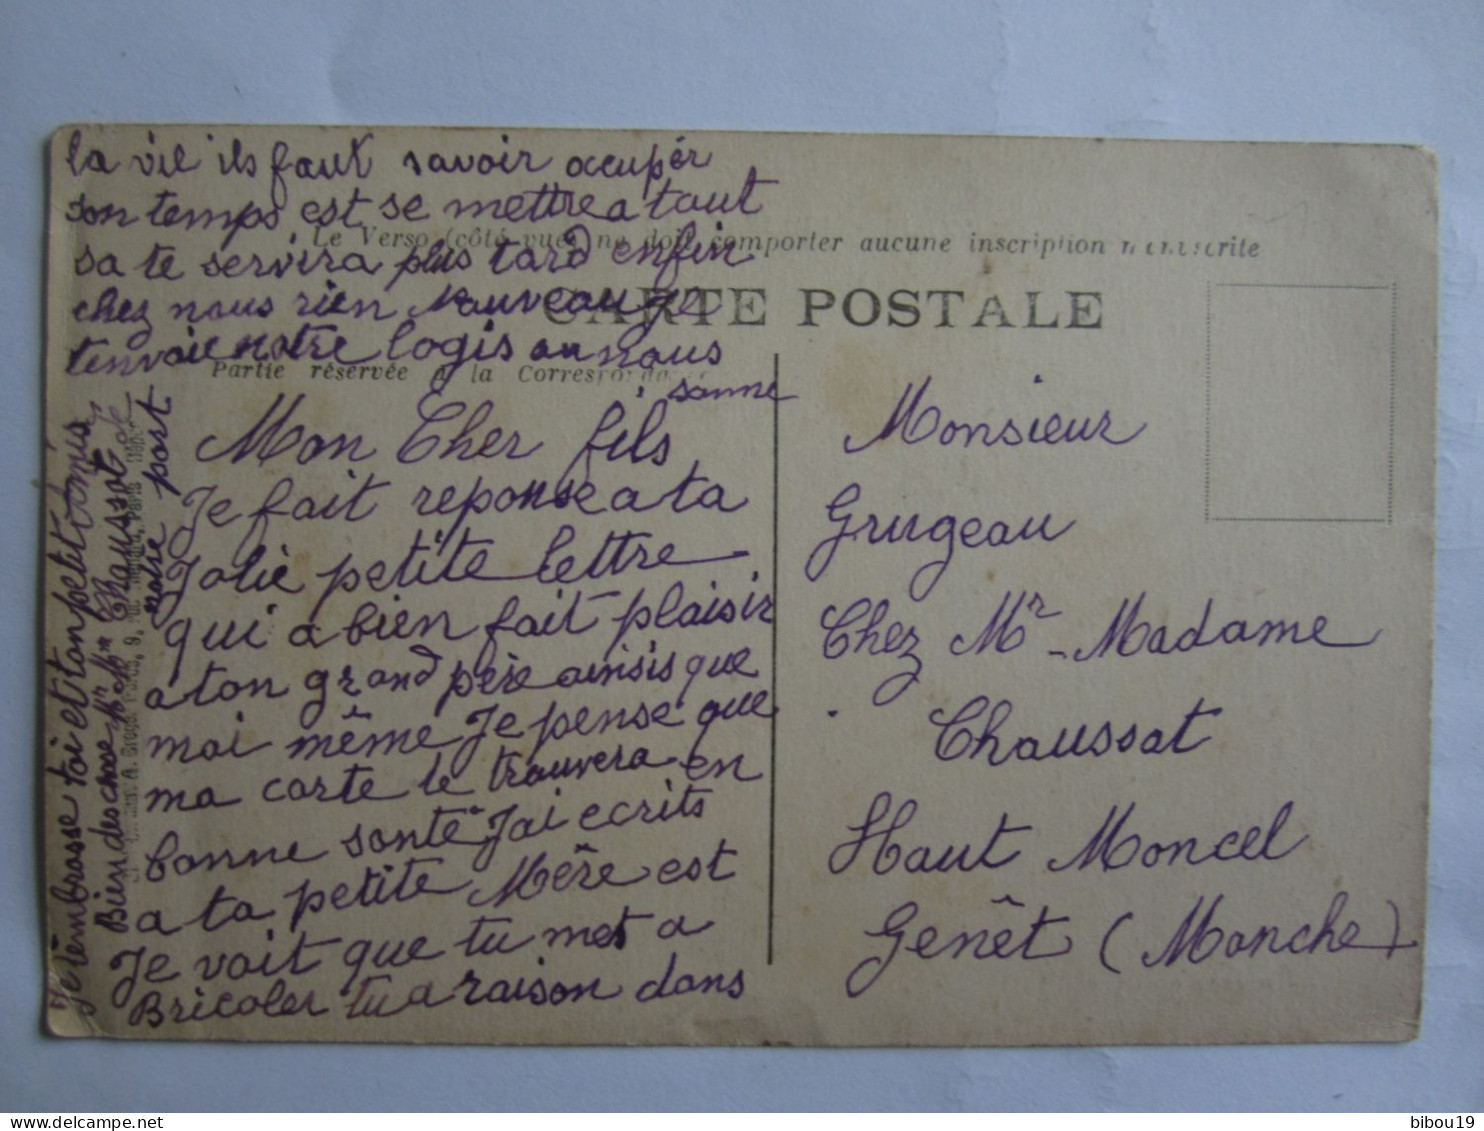 la vie ils faut savoir occupér
son temps est se mettre a tout
sa te servira plus tard enfin
chez nous rien Nouveau Je
tenvoie notre logis on nous
somme
Le Verso (côté vue) ne doit comporter aucune inscription manuscrite
CARTE POSTALE
Partie réservée à la Correspondance
Mon Cher fils
Je fait reponse a ta
Jolie petite lettre
qui a bien fait plaisir
a ton grand père ainsis que
moi même Je pense que
ma carte te trouvera en
bonne santé J'ai ecrits
a ta petite Mère est
Je voit que tu met a
Bricoler tu a raison dans
Je t'embrasse toi et ton petit
Bien des chose Mr Mme Chaussat de
notre part
Monsieur
Grugeau
Chez Mr - Madame
Chaussat
Haut Moncel
Genêt (Manche)
bibou19